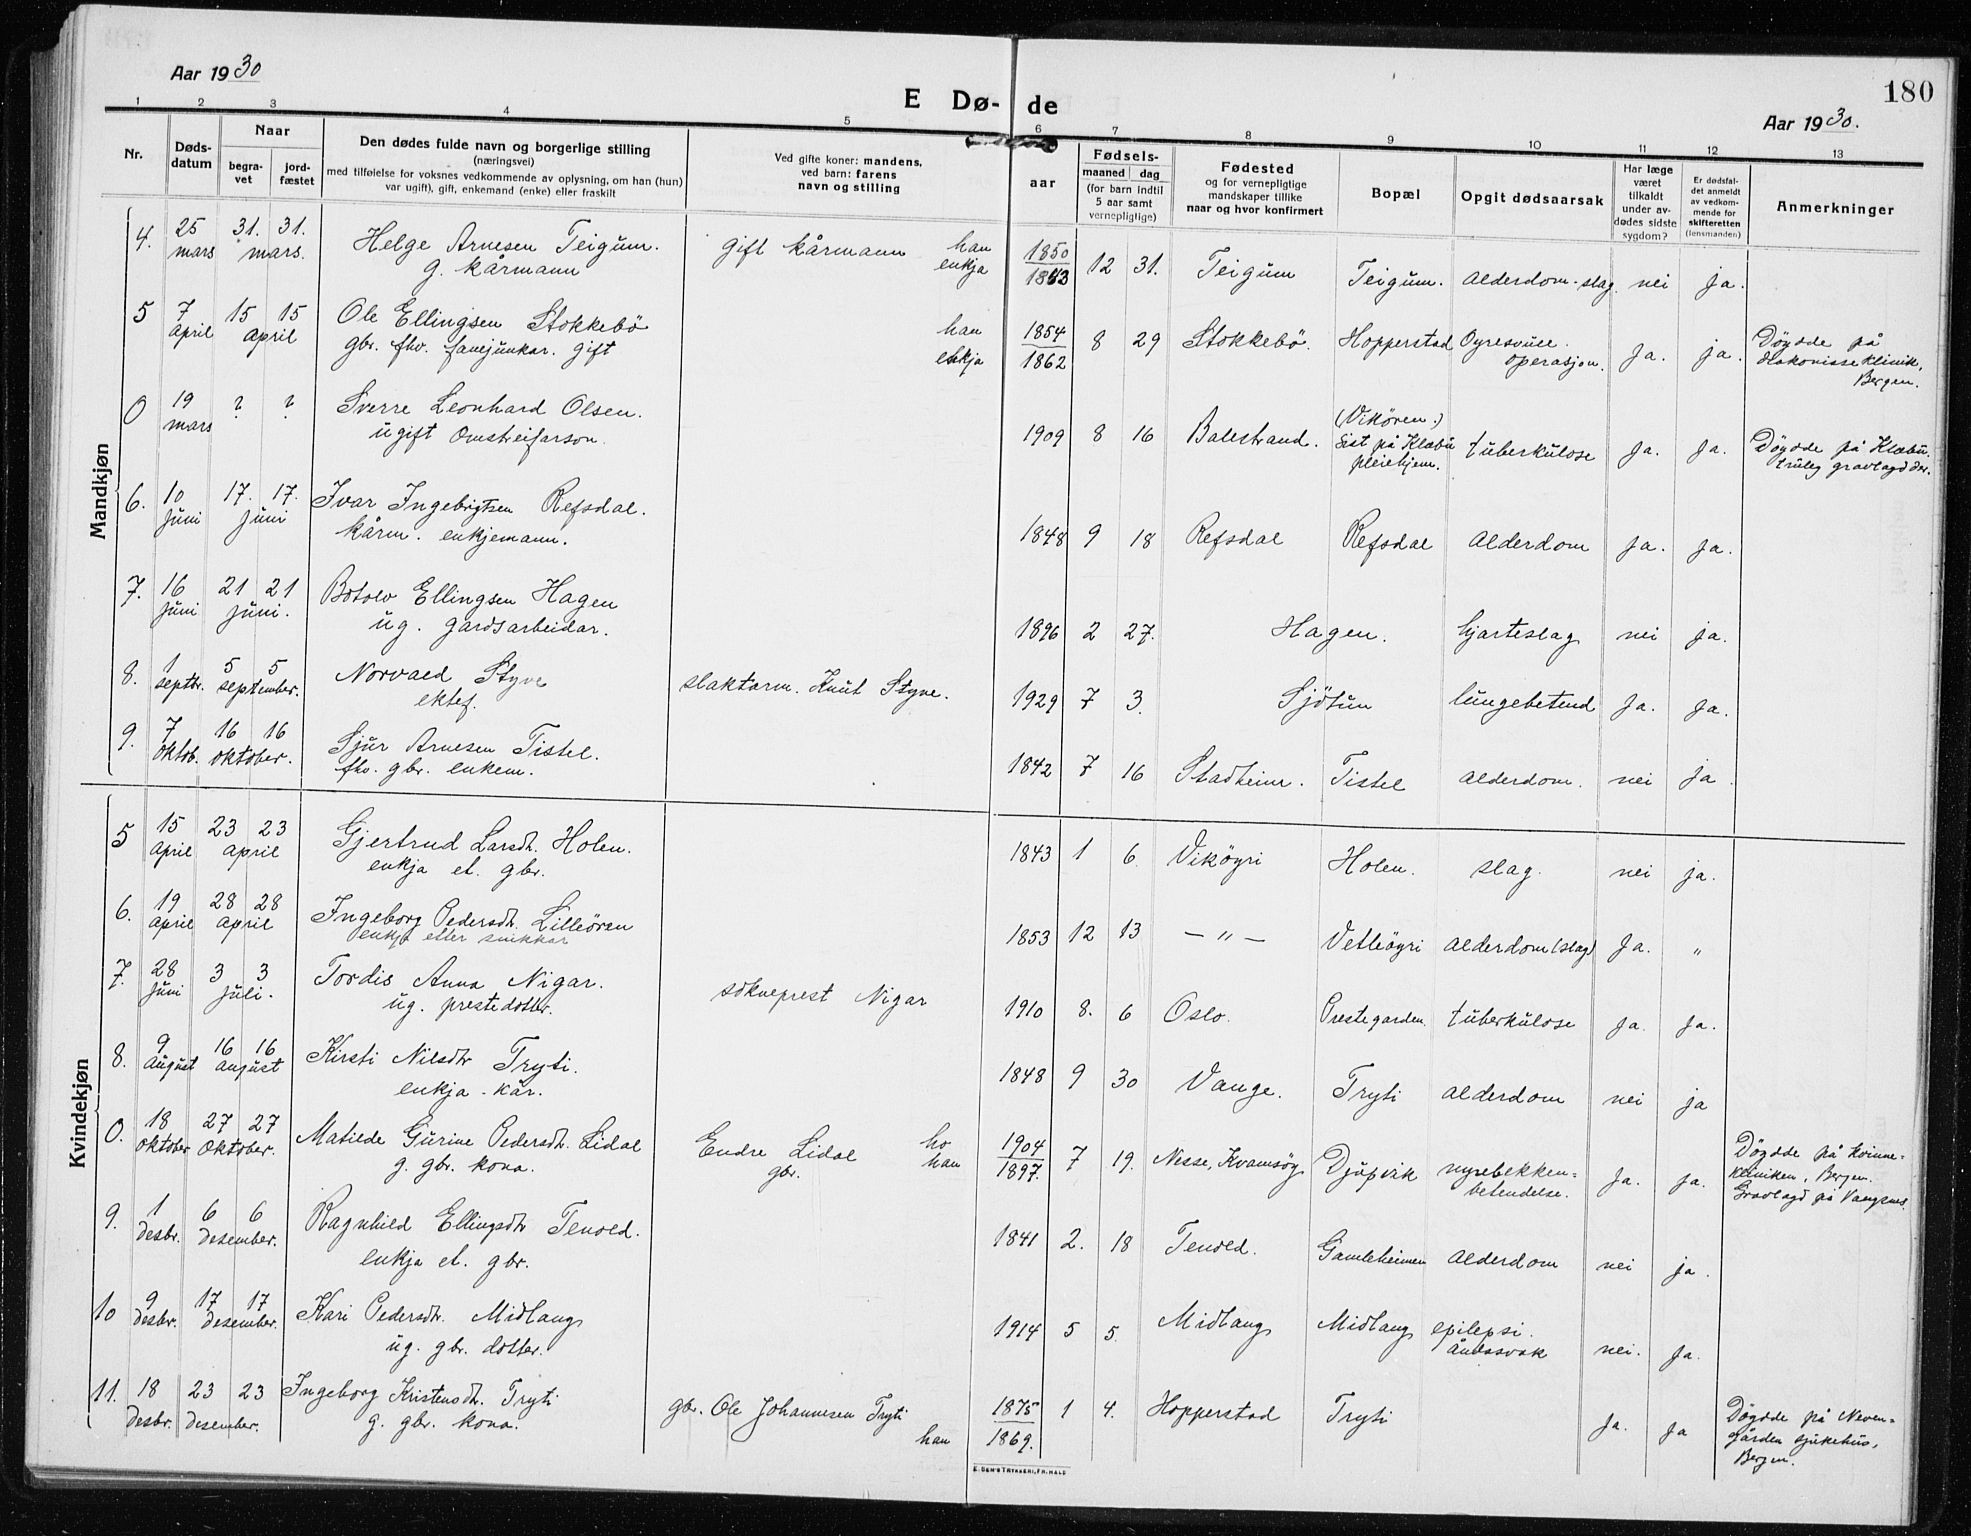 Aar 1930
E Dø- de
180
Aar 1930.
1 2 3 4 5 6 7 8 9 10 11 12 13
Nr.
Døds-
datum
Naar
begra-
vet
jord-
fæstet
Den dødes fulde navn og borgerlige stilling
(næringsvei)
med tilføielse for voksnes vedkommende av oplysning, om han (hun)
var ugift), gift, enkemand (enke) eller fraskilt
Ved gifte koner: mandens,
ved barn: farens
navn og stilling
aar
Fødsels-
maaned dag
(for barn indtil
5 aar samt
vernepligtige)
Fødested
og for vernepligtige
mandskaper tillike
naar og hvor konfirmert
Bopæl
Opgit dødsaarsak
Har læge
været
tilkaldt
under av-
dødes sidste
sygdom?
Er dødsfal-
det anmeldt
av vedkom-
mende for
skifteretten
(lensmanden)
Anmerkninger
Mandkjøn
4. 25 31. 31. Helge Arnesen Teigum. gift kårmann han 1850 12 31. Teigum Teigum. alderdom-slag nei ja.
mars mars. g. kårmann enkja 1843
5 7 15 15 Ole Ellingsen Stokkebö han 1854 8 29 Stokkebö. Hopperstad Oyresvull. Ja. ja. Döydde på
april april gbr. fhv. fanejunkar. gift enkja 1862 operasjon. diakonisseklinik,
Bergen.
0 19 ? ? Sverre Leonhard Olsen. 1909 8 16 Balestrand. (Vikören.) tuberkulose Ja. Ja. Döydde på Klæbu.
mars ugift Omstreifarson. Sist på Klæbu truleg gravlagd der.
pleiehjem.
6. 10 17. 17. Ivar Ingebrigtsen Refsdal. 1848 9 18 Refsdal Refsdal alderdom Ja. Ja.
juni juni kårm. enkjemann.
7. 16 21 21 Botolv Ellingsen Hagen 1896 2 27. Hagen. hjarteslag nei ja.
juni juni. ug. gardsarbeidar.
8. 1 5 5 Norvald Styve slaktarm. Knut Styve. 1929 7 3. Sjötun lungebetend Ja. Ja.
septbr. september. ektef.
9. 7 16 16 Sjur Arnesen Tistel. 1842 7 16 Stadheim. Tistel alderdom. nei ja
oktob. oktober. fhv. gbr. enkem.
Kvindekjøn
5 15 23 23 Gjertrud Larsdt. Holen. 1843 1 6. Viköyri Holen. slag. nei ja.
april april enkja et. gbr.
6. 19 28 28 Ingeborg Pedersdt. Lilleören 1853 12 13 — " — Vetleöyri alderdom (slag) Ja. "
april april enkja etter snikkar
7. 28 3 3 Tordis Anna Nigar. sokneprest Nigar 1910 8. 6 Oslo. Prestegarden. tuberkulose Ja. Ja.
juni juli. ug. prestedotter.
8. 9 16 16 Kirsti Nilsdtr Tryti. 1848 9 30 Vange. Tryti alderdom nei ja
august august enkja - kår.
0. 18 27 27 Matilde Gurine Pedersdt. Lidal Endre Lidal ho 1904 7 19. Nesse, Kvamsöy Djupvik nyrebekken- Ja. Ja. Döydde på kvinne-
oktober Oktober. g. gbr. kona. gbr. han 1897. betendelse. kliniken, Bergen.
Gravlagd på Vangsnes.
9. 1 6 6 Ragnhild Ellingsdtr Tenold. 1841 2. 18 Tenold. Gamleheimen alderdom nei ja.
desbr. desember. enkja et. gbr.
10 9 17 17 Kari Pedersdt. Midlang 1914 5 5. Midlang Midlang epilepsi. nei. Ja.
desbr. desember. ug. gbr. dotter. åndssvak
11. 18 23 23 Ingeborg Kristensdt. Tryti gbr. Ole Johannesen Tryti 1875 1 4. Hopperstad Tryti Ja. Ja Döydde på Neven-
desbr. desember. g. gbr. kona. han 1869. gården sjukehus,
Bergen.
E. SEM'S TRYKKERI, FR.HALD